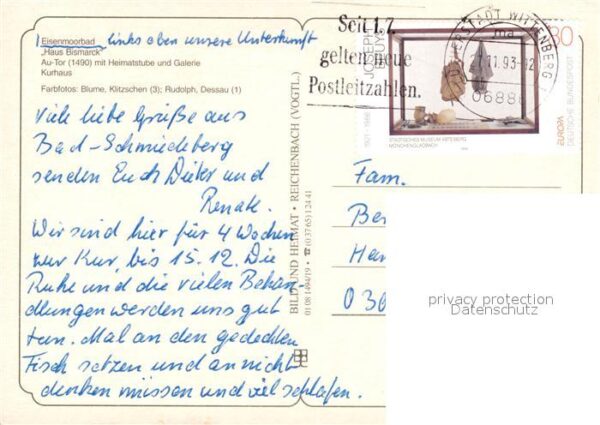 1 Eisenmoorbad links oben unsere Unterkunft
„Haus Bismarck"
Au-Tor (1490) mit Heimatstube und Galerie
Kurhaus
Farbfotos: Blume, Klitzschen (3); Rudolph, Dessau (1)
Viele liebe Grüße aus
Bad-Schmiedeberg
senden Euch Dieter und
Renate.
Wir sind hier für 4 Wochen
zur Kur, bis 15.12. Die
Ruhe und die vielen Behan-
dlungen werden uns gut
tun. Mal an den gedeckten
Tisch setzen und an nicht
denken müssen und viel schlafen.
BILD UND HEIMAT · REICHENBACH (VOGTL.)
01 08 1494/19 · ☎ (0 37 65) 1 24 41
Seit 1.7.
gelten neue
Postleitzahlen.
WITTENBERG
11.93-12
06886
JOSEPH
80
STÄDTISCHES MUSEUM ABTEIBERG
MÖNCHENGLADBACH
EUROPA
DEUTSCHE BUNDESPOST
Fam.
Ber
030
privacy protection
Datenschutz